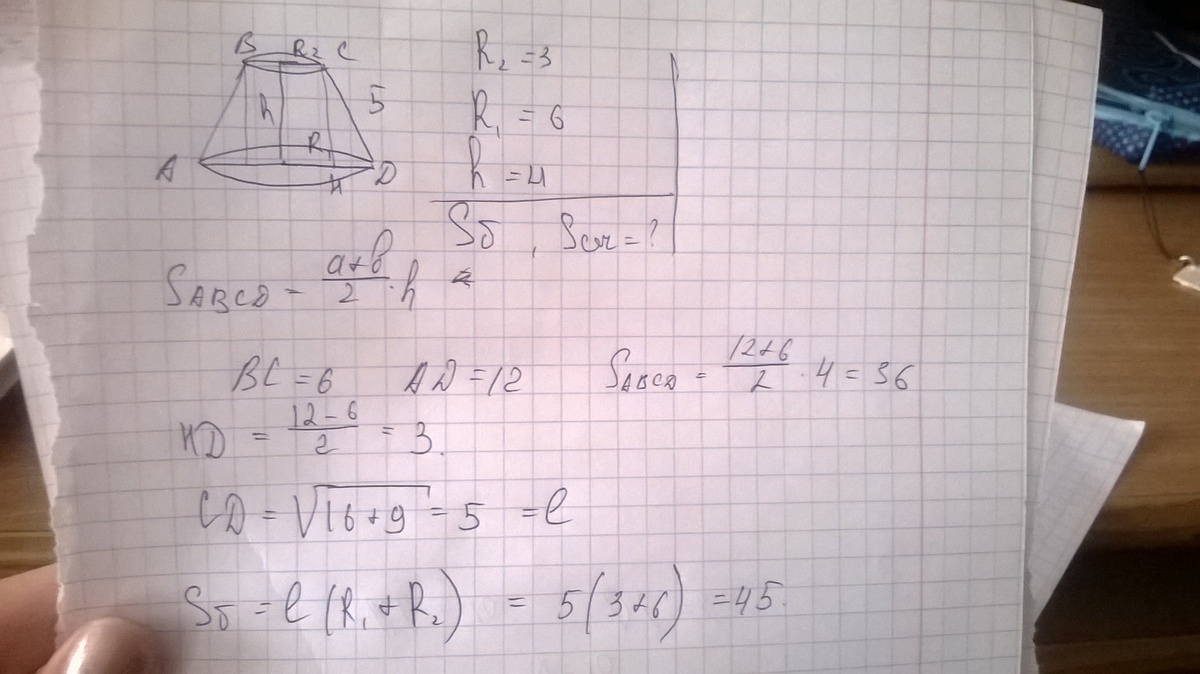 B R₂ C
h 5
R₁
A H D
R₂ = 3
R₁ = 6
h = 4
Sб , Sсеч = ?
S_ABCD = (a+b)/2 · h
BC = 6 AD = 12 S_ABCD = (12+6)/2 · 4 = 36
HD = (12-6)/2 = 3.
CD = √(16+9) = 5 = l
Sб = l (R₁ + R₂) = 5(3+6) = 45.